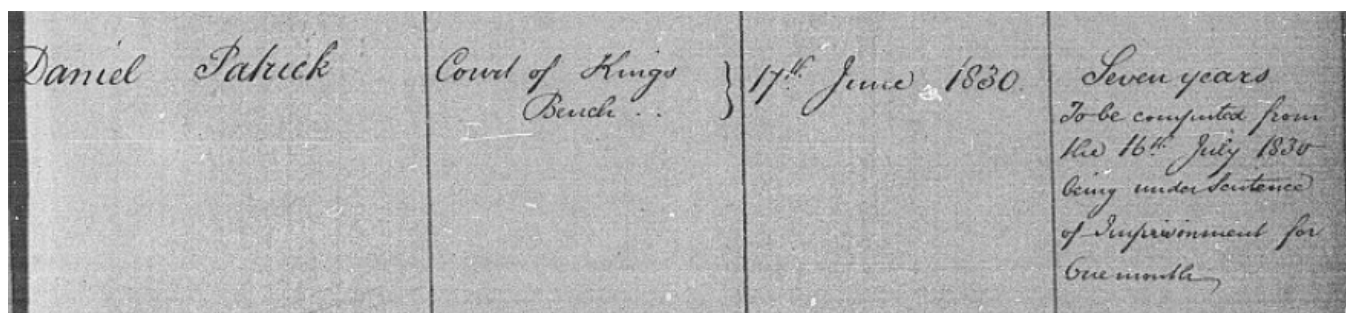 Daniel Patrick Court of Kings } 17th June 1830. Seven years.
Bench . . To be computed from
the 16th July 1830
being under Sentence
of Imprisonment for
One month